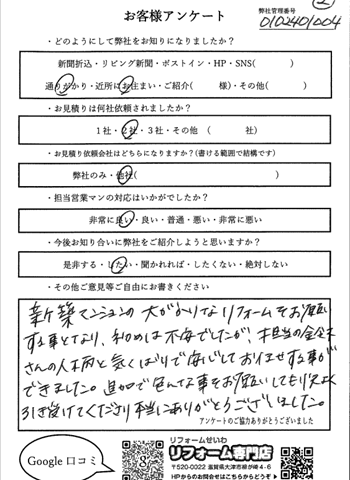 ②
お客様アンケート
弊社管理番号
0102401004
・どのようにして弊社をお知りになりましたか？
新聞折込・リビング新聞・ポストイン・HP・SNS(　　　)
通りがかり・近所にお住まい・ご紹介(　　　様)・その他(　　　)
・お見積りは何社依頼されましたか？
1社・2社・3社・その他　(　　　社)
・お見積り依頼会社はどちらになりますか？(書ける範囲で結構です)
弊社のみ・他社(　　　)
・担当営業マンの対応はいかがでしたか？
非常に良い・良い・普通・悪い・非常に悪い
・今後お知り合いに弊社をご紹介しようと思いますか？
是非する・したい・聞かれれば・したくない・絶対しない
・その他ご意見等ご自由にお書きください
新築マンションの大がかりなリフォームをお願い
する事となり、初めは不安でしたが、担当の
さんの人柄と気くばりで安心しておまかせする事が
できました。追加で色んな事をお願いしても
引き受けてくださり本当にありがとうございました。
アンケートのご協力ありがとうございました
Google口コミ
リフォームせいわ
リフォーム専門店
〒520-0022 滋賀県大津市柳が崎4-6
HPからのお問合せはこちらからどうぞ